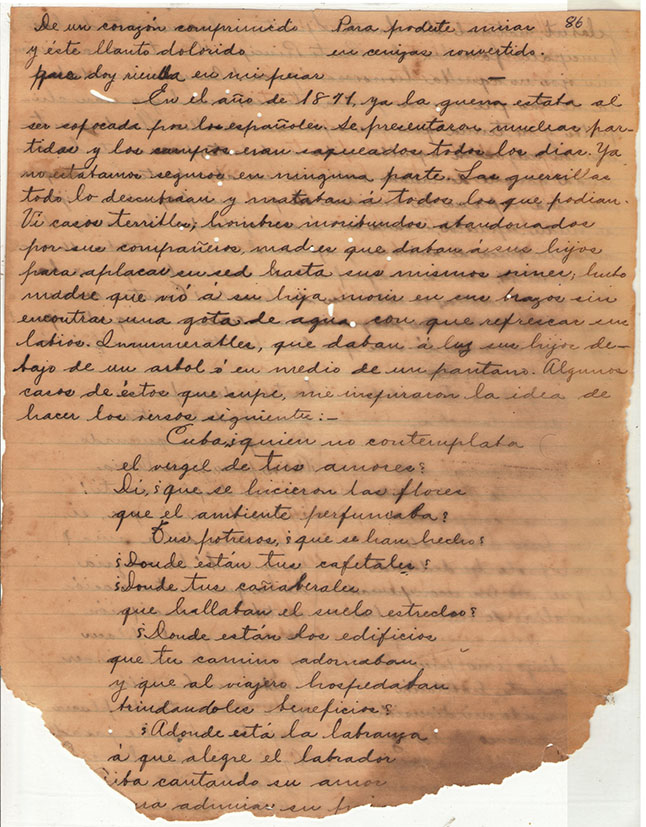 86
De un corazón comprimido Para poderte mirar
y éste llanto dolorido en cenizas convertido.
que doy rienda en mi pesar
En el año de 1871, ya la guerra estaba al
ser sofocada por los españoles. Se presentaron muchas par-
tidas y los campos eran saqueados todos los dias. Ya
no estábamos seguros en ninguna parte. Las guerrillas
todo lo descubrian y mataban á todos los que podian.
Vi casos terribles, hombres moribundos abandonados
por sus compañeros, madres que daban á sus hijos
para aplacar su sed hasta sus mismos orines; hubo
madre que vió á su hija morir en sus brazos sin
encontrar una gota de agua con que refrescar sus
labios. Innumerables, que daban á luz sus hijos de-
bajo de un arbol ó en medio de un pantano. Algunos
casos de éstos que supe, me inspiraron la idea de
hacer los versos siguientes:-
Cuba, ¿quien no contemplaba
el vergel de tus amores?
Di, ¿que se hicieron las flores
que el ambiente perfumaba?
Tus potreros, ¿que se han hecho?
¿Donde están tus cafetales?
¿Donde tus cañaberales
que hallaban el suelo estrecho?
¿Donde están los edificios
que tu camino adornaban
y que al viajero hospedaban
brindandoles beneficios?
¿Adonde está la labranza
á que alegre el labrador
iba cantando su amor
admirar su